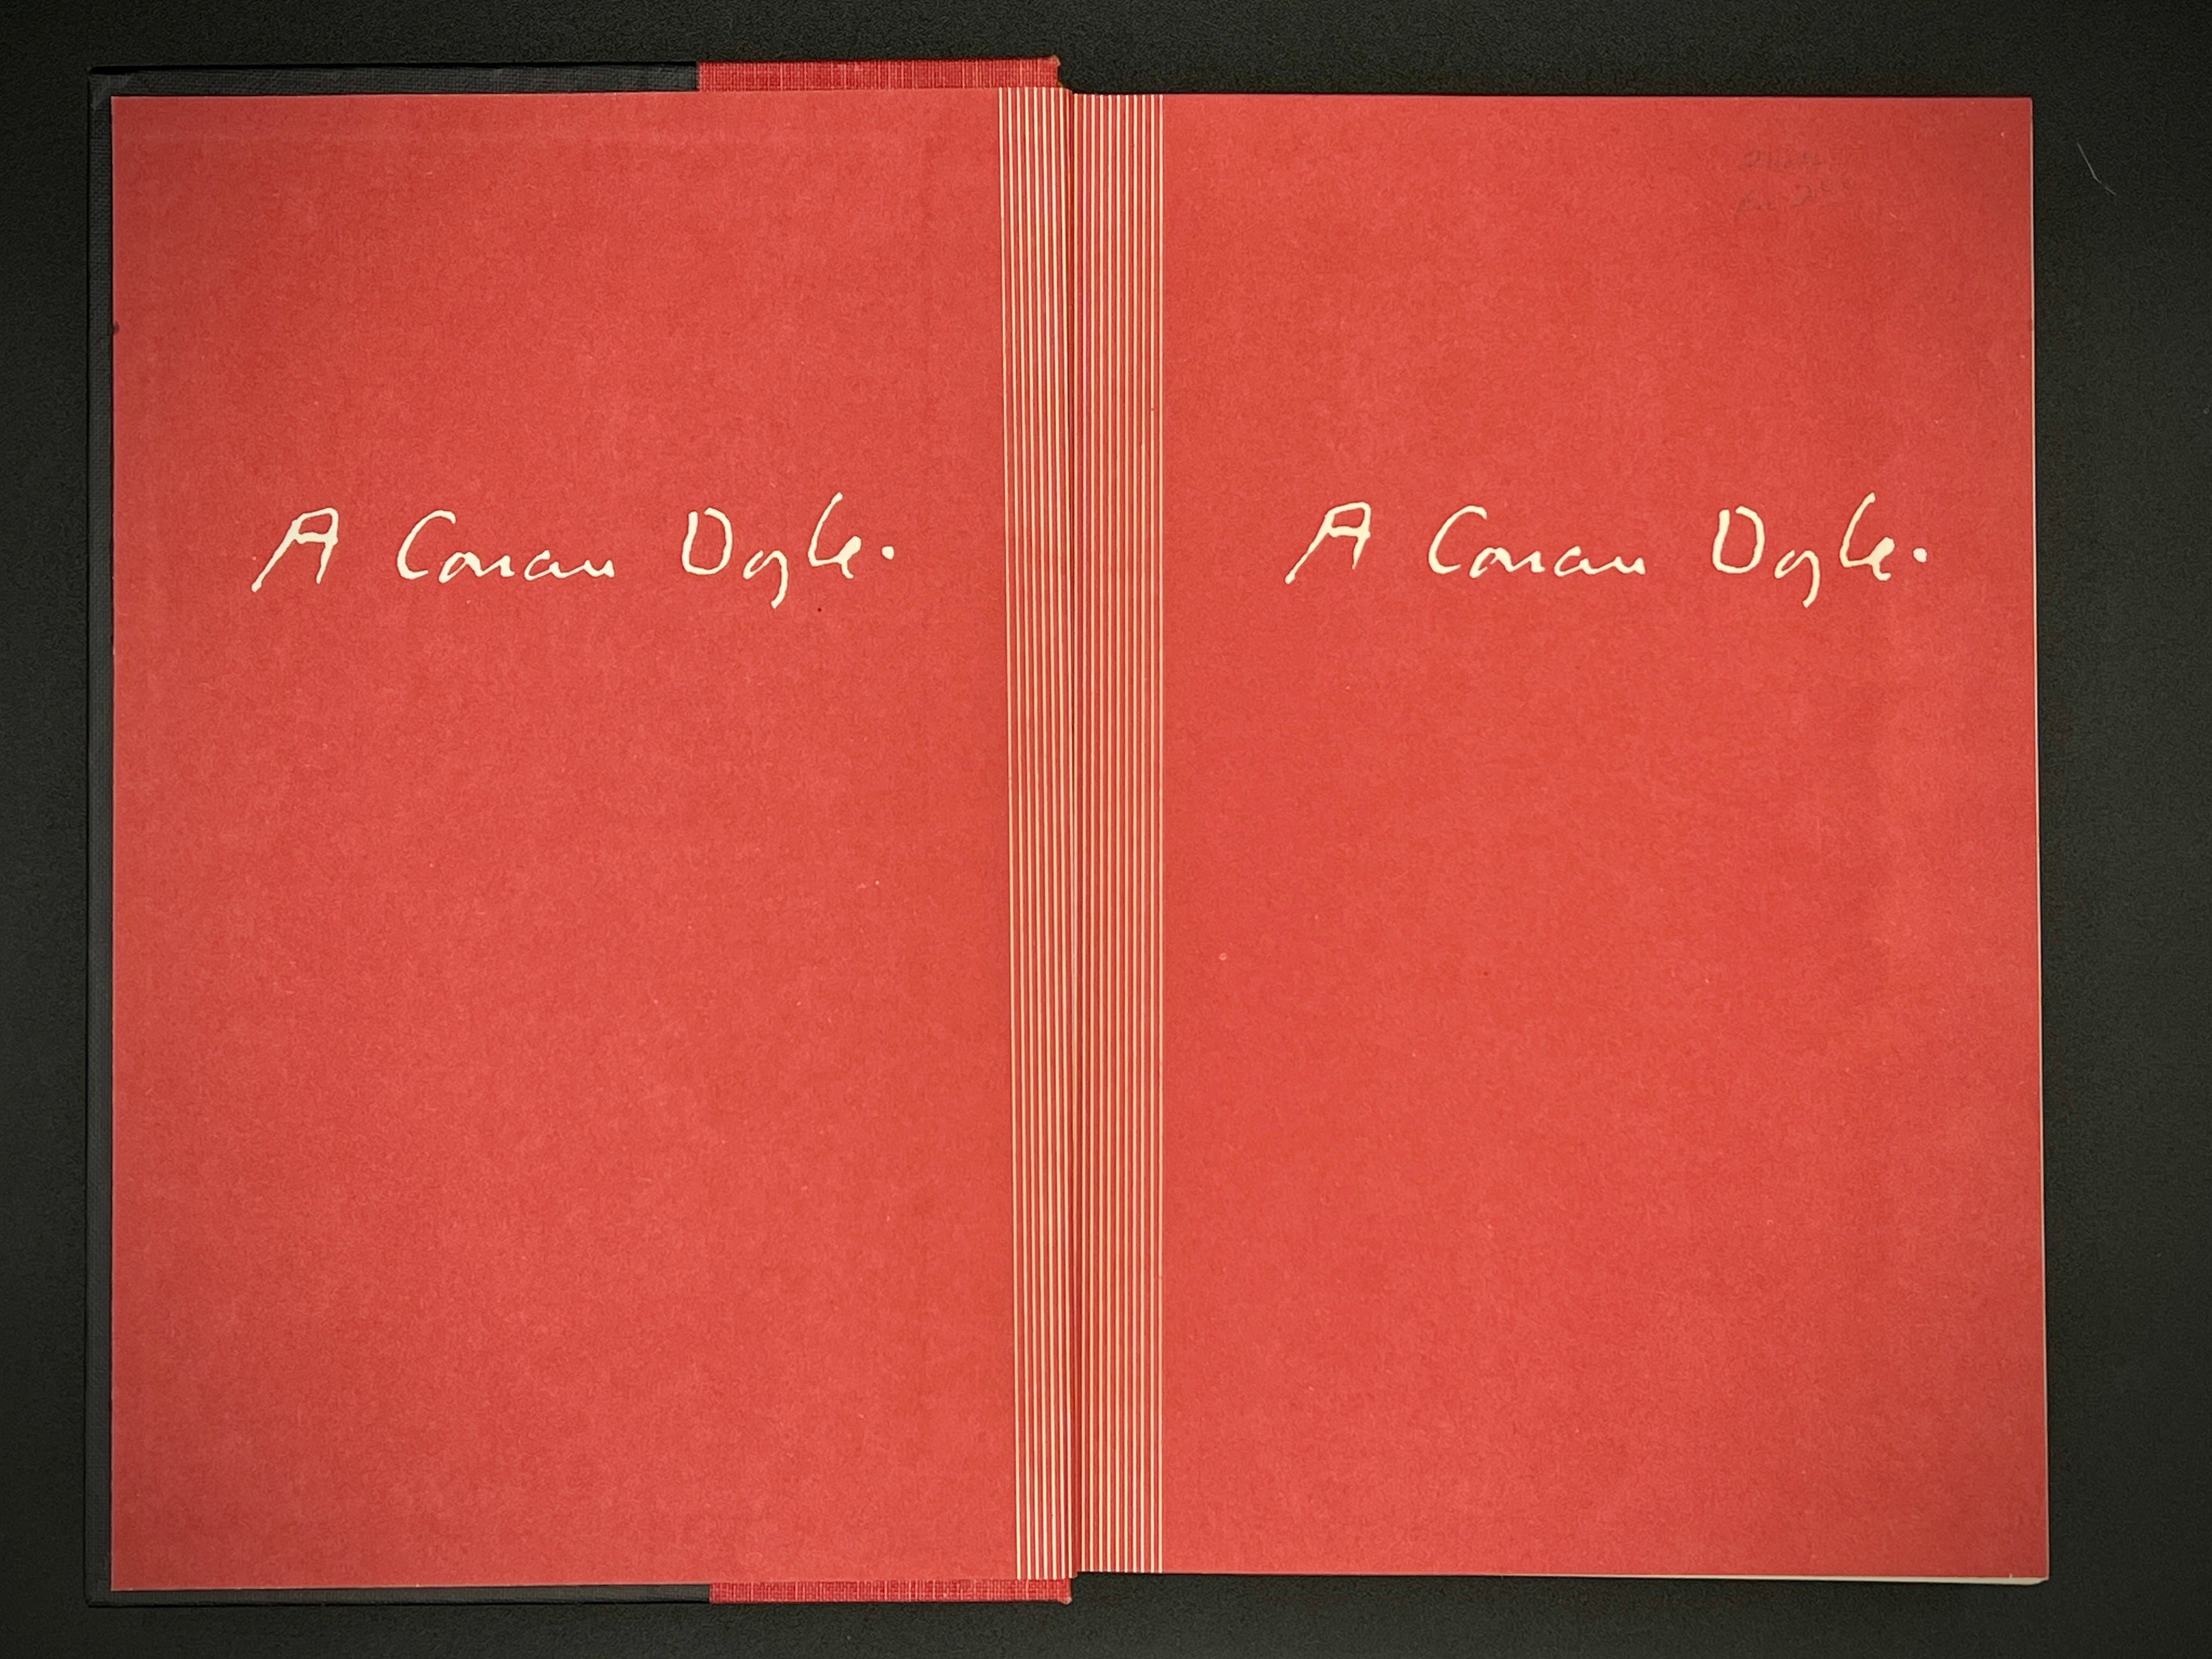 A Conan Doyle.
A Conan Doyle.